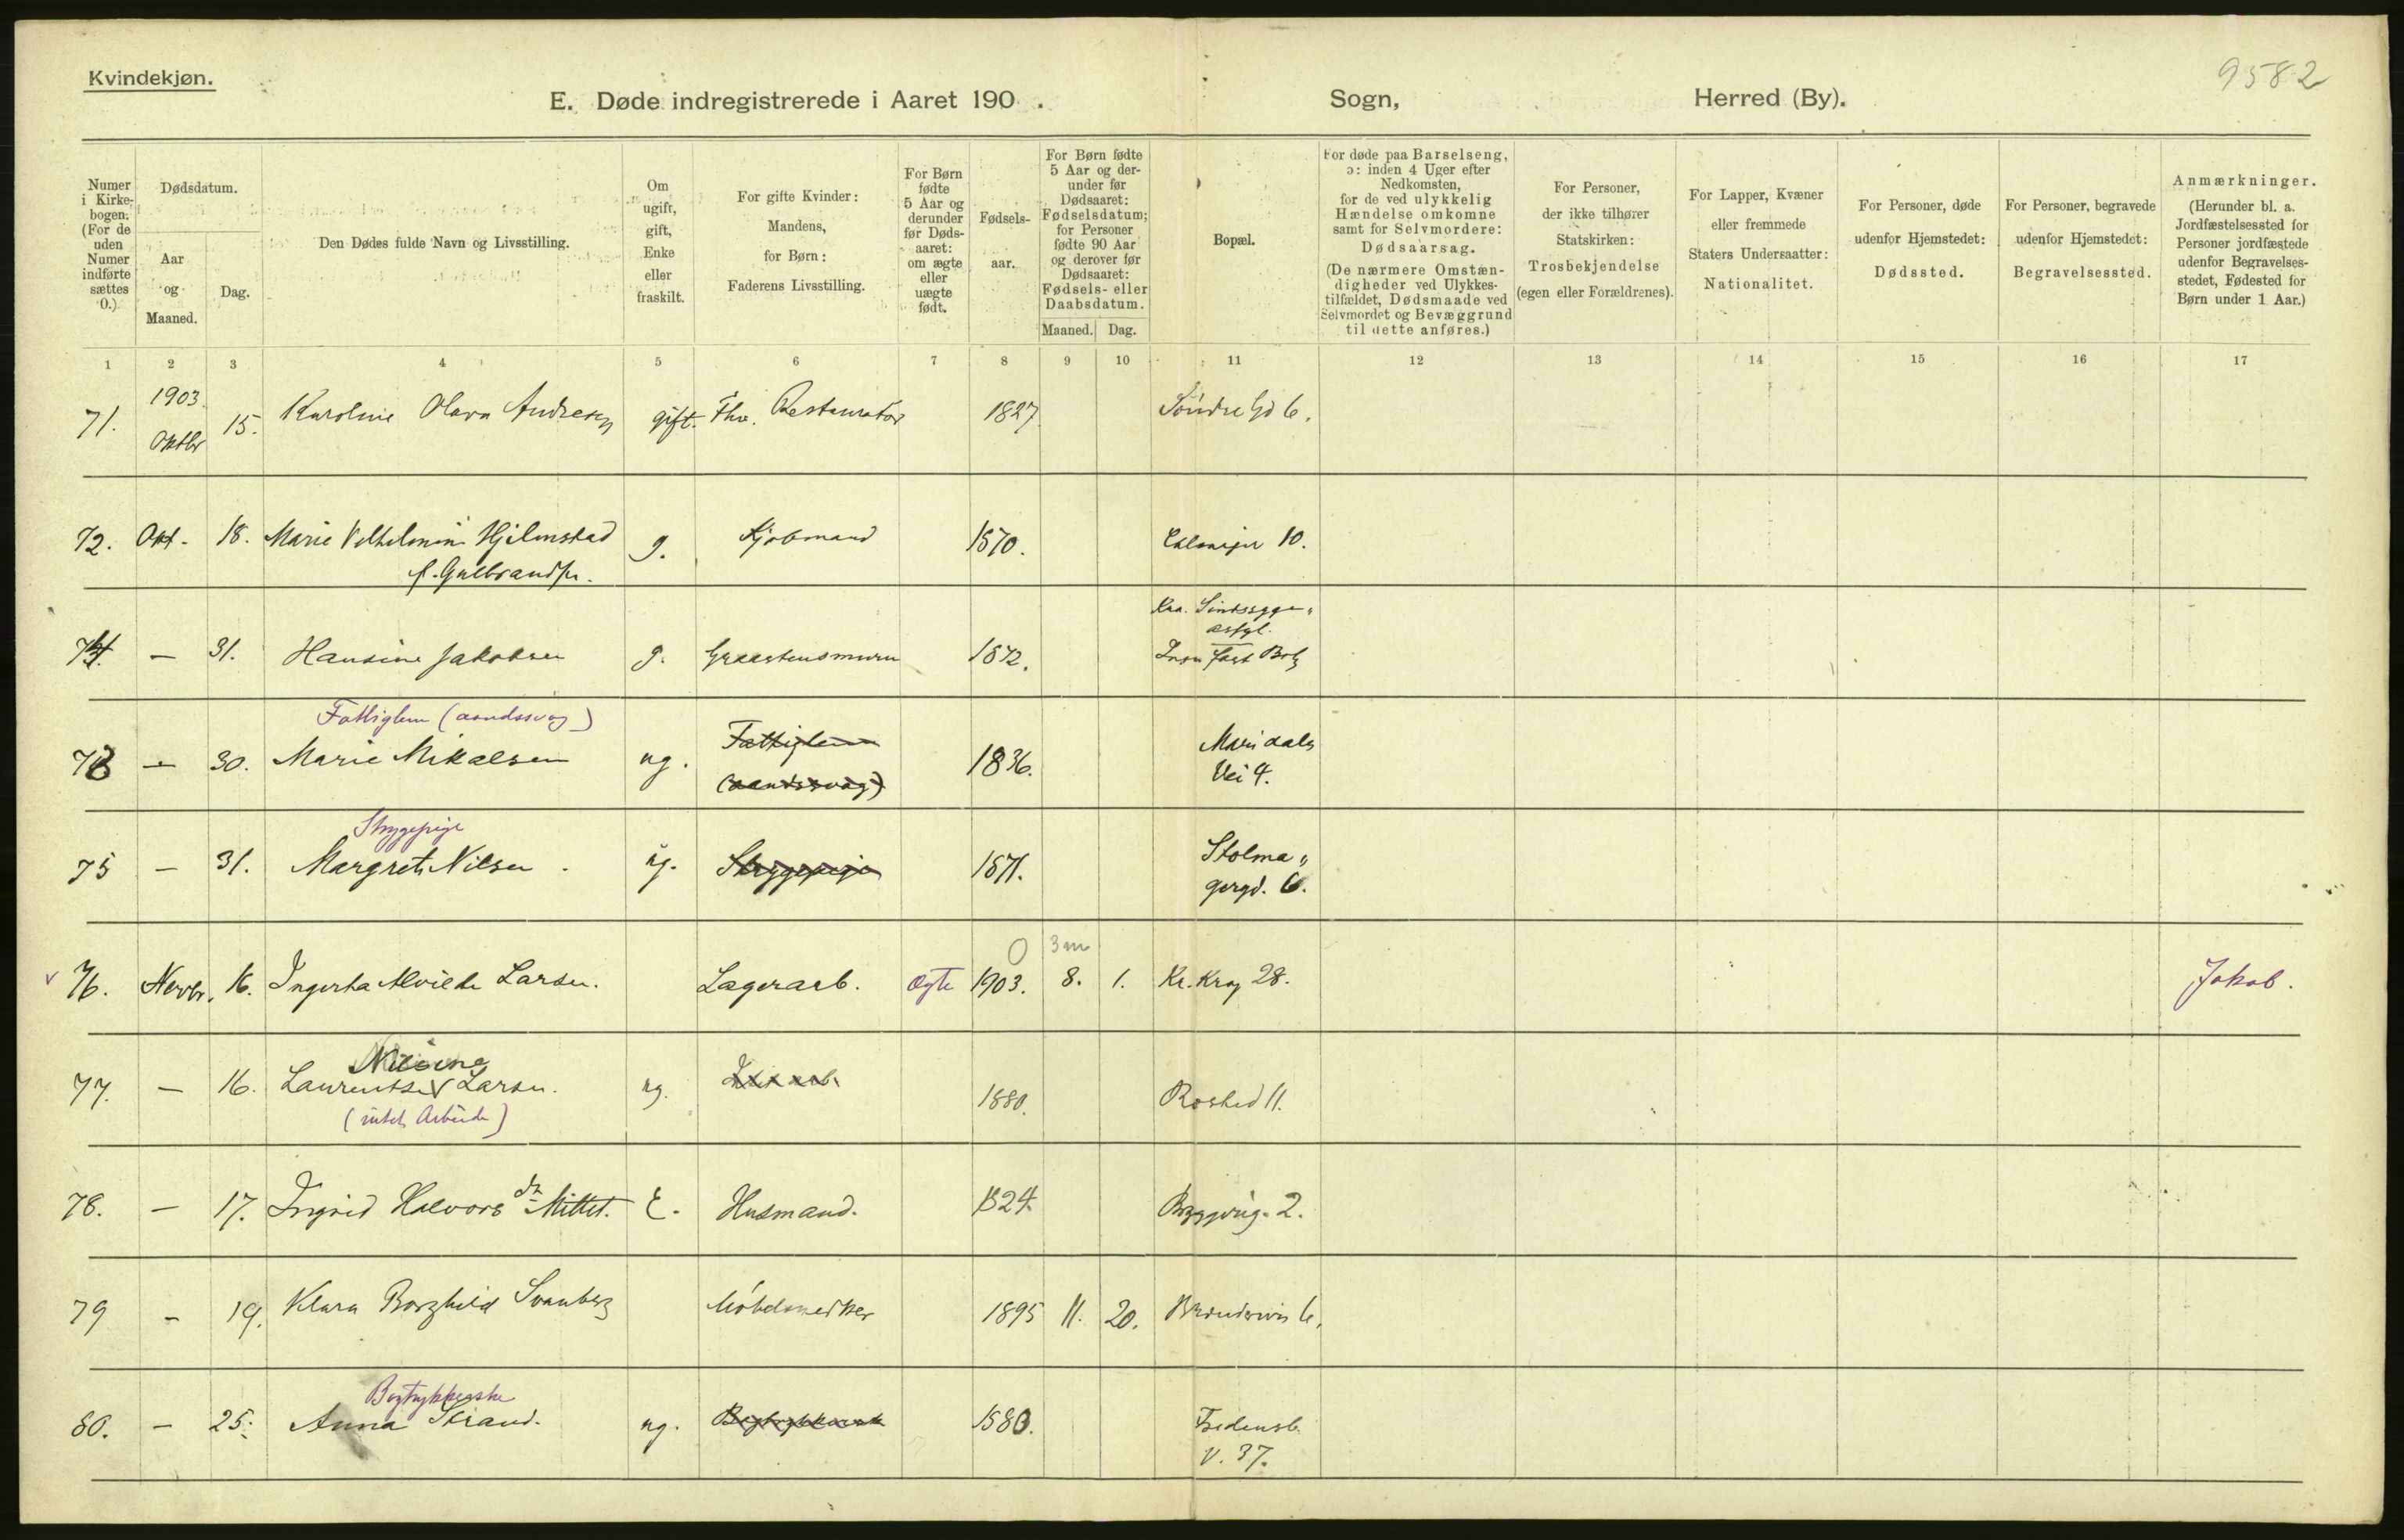 Kvindekjøn.
9582
E. Døde indregistrerede i Aaret 190 . Sogn, Herred (By).
Numer i Kirkebogen. (For de uden Numer indførte sættes 0.)
Dødsdatum.
Aar og Maaned.
Dag.
Den Dødes fulde Navn og Livsstilling.
Om ugift, gift, Enke eller fraskilt.
For gifte Kvinder: Mandens, for Børn: Faderens Livsstilling.
For Børn fødte 5 Aar og derunder før Dødsaaret: om ægte eller uægte født.
Fødselsaar.
For Børn fødte 5 Aar og derunder før Dødsaaret: Fødselsdatum; for Personer fødte 90 Aar og derover før Dødsaaret: Fødsels- eller Daabsdatum.
Maaned. Dag.
Bopæl.
For døde paa Barselseng, ɔ: inden 4 Uger efter Nedkomsten, for de ved ulykkelig Hændelse omkomne samt for Selvmordere: Dødsaarsag. (De nærmere Omstændigheder ved Ulykkestilfældet, Dødsmaade ved Selvmordet og Bevæggrund til dette anføres.)
For Personer, der ikke tilhører Statskirken: Trosbekjendelse (egen eller Forældrenes).
For Lapper, Kvæner eller fremmede Staters Undersaatter: Nationalitet.
For Personer, døde udenfor Hjemstedet: Dødssted.
For Personer, begravede udenfor Hjemstedet: Begravelsessted.
Anmærkninger. (Herunder bl. a. Jordfæstelsessted for Personer jordfæstede udenfor Begravelsesstedet, Fødested for Børn under 1 Aar.)
1 2 3 4 5 6 7 8 9 10 11 12 13 14 15 16 17
71. 1903 Oktbr 15. Karoline Olava Andresen gift. Fhv. Restauratør 1827. Söndre Gd 6.
72. Okt. 18. Marie Vilhelmine Hjelmstad g. Kjøbmand 1870. 10.
f. Gulbrandsen.
74. — 31. Hansine Jakobsen g. Graastensmurer 1872. Kra. Sindssygeasyl.
Ingen fast Bolig
Fattiglem (aandssvag)
73 — 30. Marie Mikalsen ug. Fattiglem (aandssvag) 1836. Maridals Vei 4.
Strygepige
75 — 31. Margrete Nilsen. ug. Strygepige 1871. Stolmagergd. 6.
76. Novbr. 16. Ingerta Alvilde Larsen. Lagerarb. Ægte 1903. 8. 1. Kr. Krog 28. Jakob.
0 3 m
Nilsine
77. — 16. Laurentse Larsen. ug. 1880. Rosted 11.
(intet Arbeide)
78. — 17. Ingrid Halvorsdr Mittet. E. Husmand. 1824. Byggvrig. 2.
79 — 19. Klara Borghild Svanberg Möbelsnedker 1895 11. 20. 6.
Bogtrykkerske
80. — 25. Anna Strand. ug. Bogtrykkerske 1880. Fredensb. V. 37.